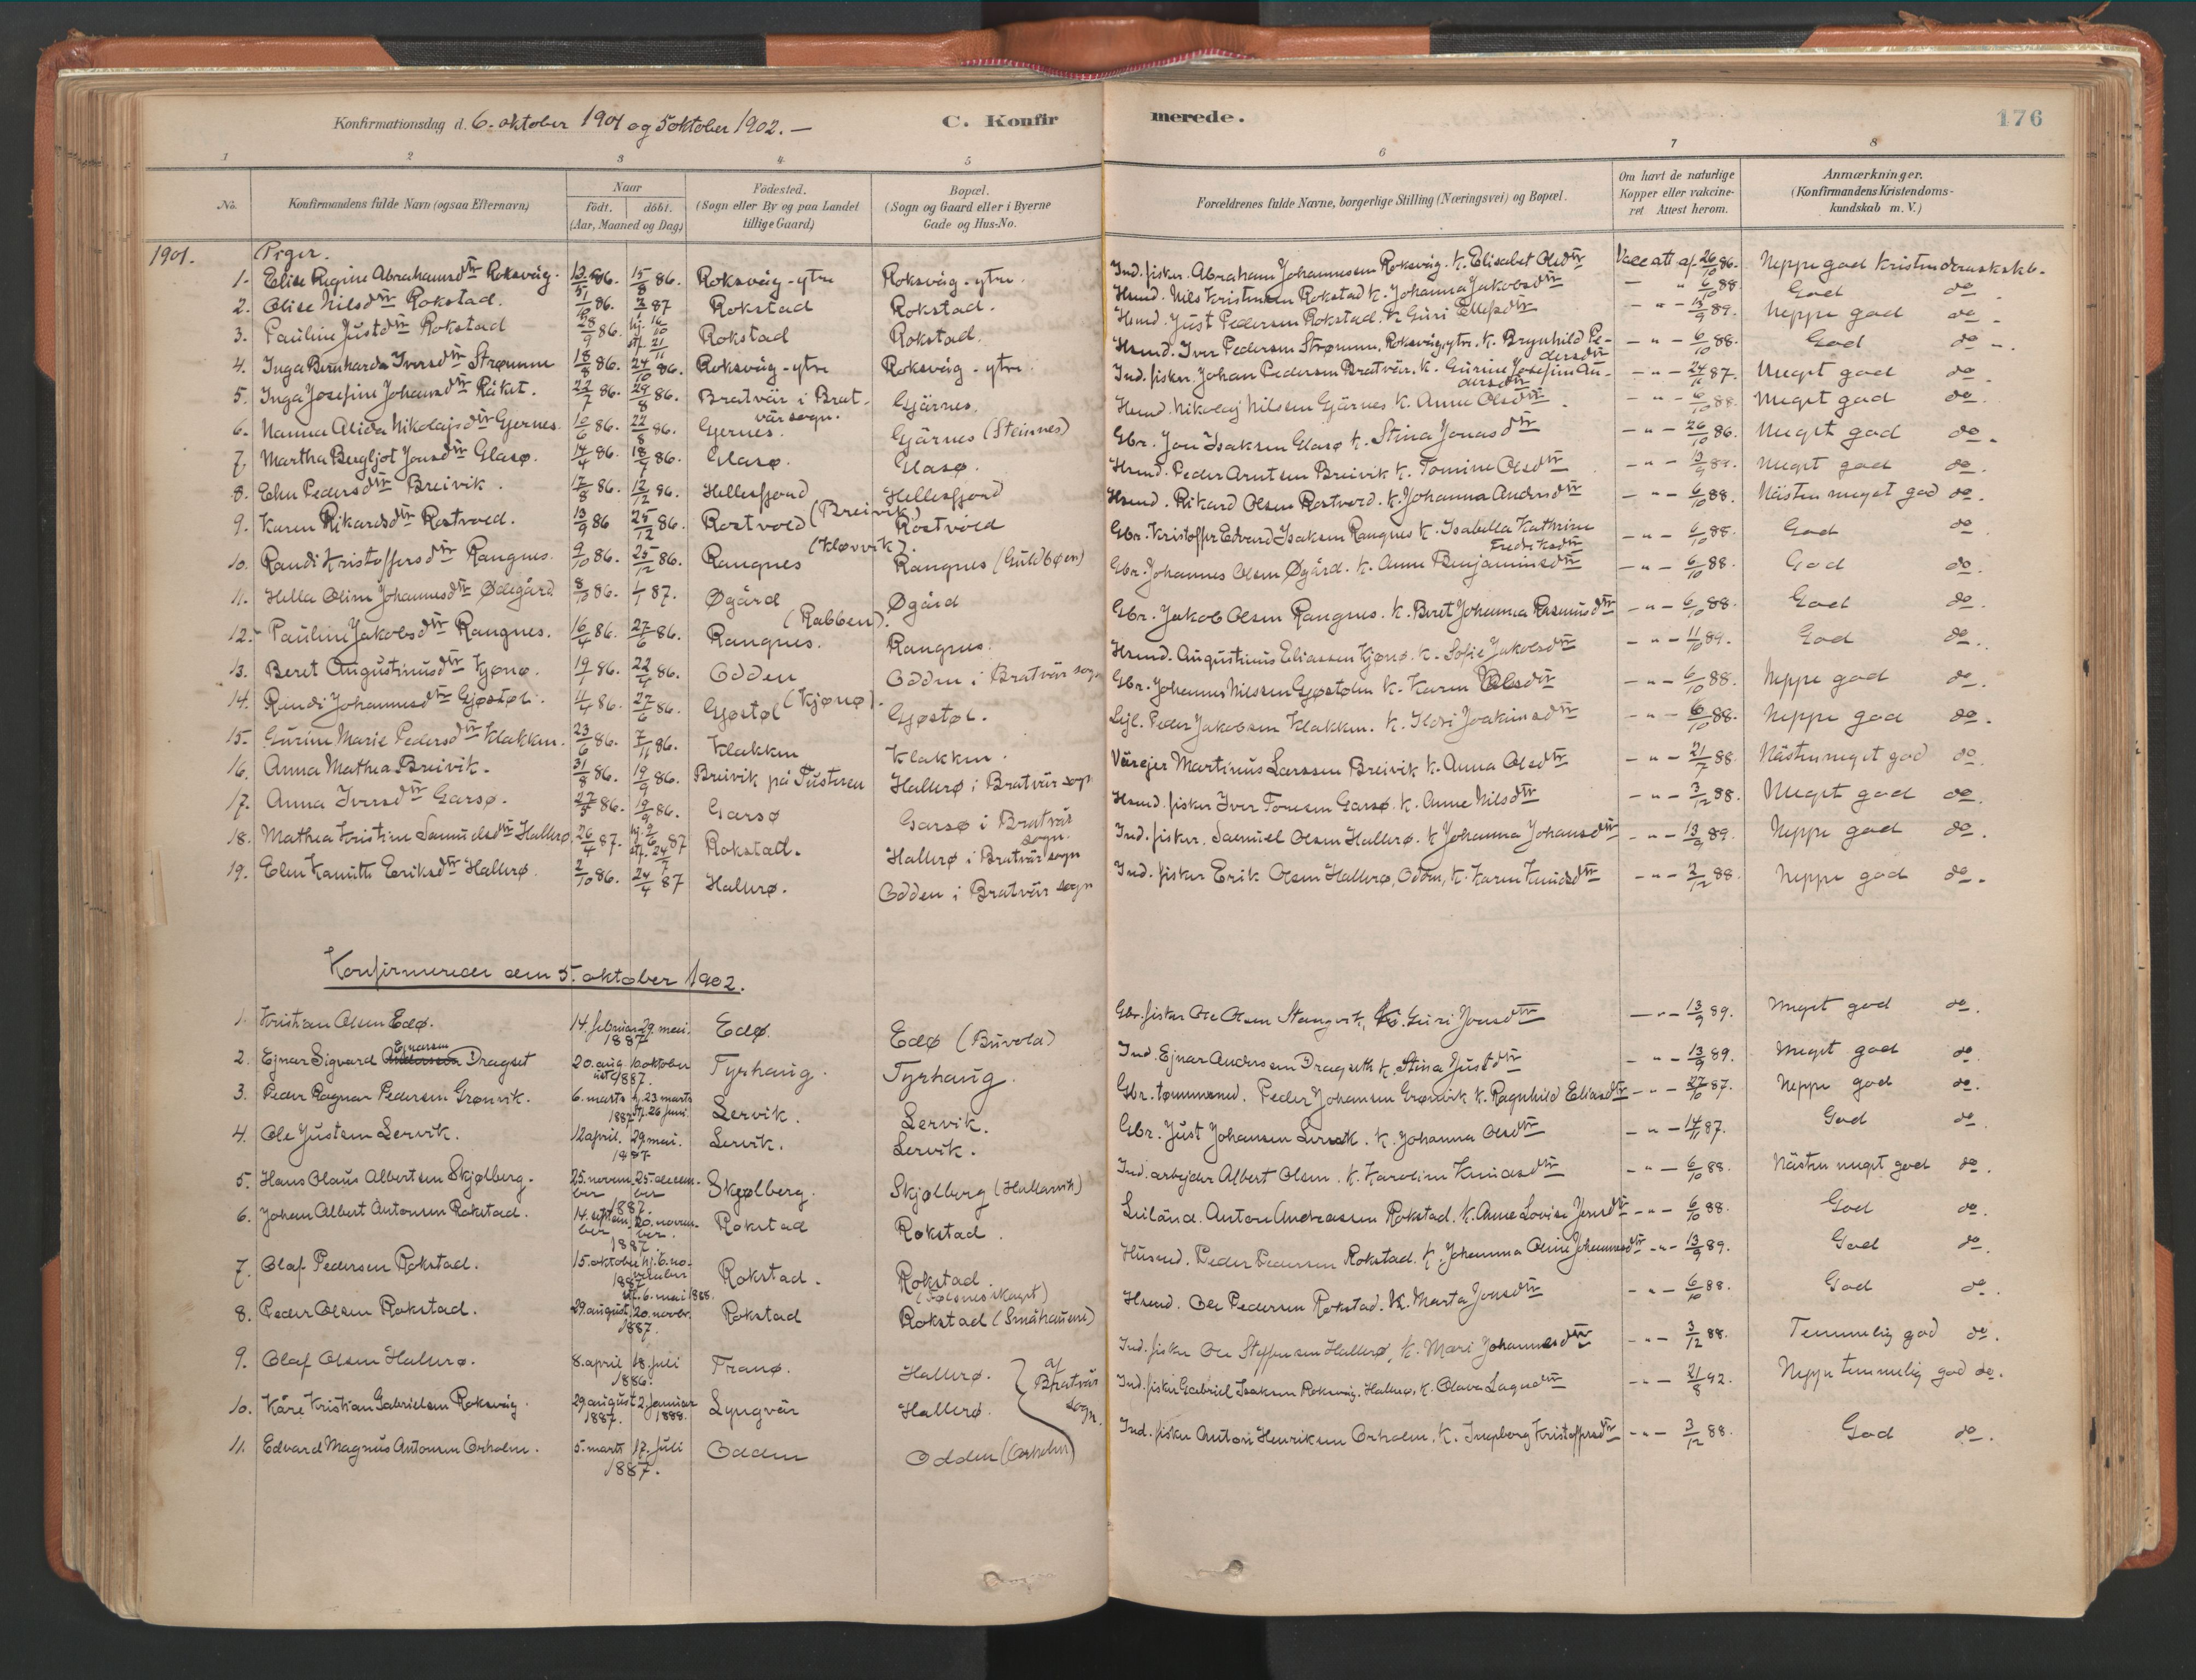 Konfirmationsdag d. 6. oktober 1901 og 5 oktober 1902. —
C. Konfirmerede.
176
1 2 3 4 5 6 7 8
No.
Konfirmandens fulde Navn (ogsaa Efternavn)
Naar
født. døbt.
(Aar, Maaned og Dag)
Fødested.
(Sogn eller By og paa Landet
tillige Gaard)
Bopæl.
(Sogn og Gaard eller i Byerne
Gade og Hus-No.
Forældrenes fulde Navne, borgerlige Stilling (Næringsvei) og Bopæl.
Om havt de naturlige
Kopper eller vakcine-
ret Attest herom.
Anmærkninger.
(Konfirmandens Kristendoms-
kundskab m. V.)
1901. Piger.
1. Elise Regine Abrahamsdtr Roksvåg. 86. 15/8 86. Roksvåg - ytre Roksvåg - ytre. Ind. fisker. Abraham Johannessen Roksvåg. k. Elisabet Olsdtr Vacc att af 26/10 86. Neppe god Kristendomskskb.
2. Olise Nilsdtr Rokstad. 86. 87 Rokstad Rokstad. Hsmd. Nils Kristensen Rokstad k. Johanna Jakobsdtr — " 6/10 88 God do.
3. Pauline Justdtr Rokstad 28/9 86. hj. 16/10 stf. 21/11 Rokstad Rokstad. Hsmd. Just Pedersen Rokstad. k. Guri Ellefsdtr — " — 13/9 89. Neppe god do.
4. Inga Bernharda Iversdtr Strømme 18/8 86. 24/10 86. Roksvåg - ytre Roksvåg - ytre. Hsmd. Iver Pedersen Strømme, Roksvåg, ytre. k. Brynhild Pe-
dersdtr — " — 6/10 88. God do.
5. Inga Josefine Johansdtr Råket. 22/7 86. 29/8 86. Bratvär i Brat-
vär sogn. Gjärnes. Ind. fisker. Johan Pedersen Bratvär. k. Gurine Josefine An-
dersdtr — " — 24/11 87. Meget god do.
6. Nanna Alida Nikolajsdtr Gjernes. 10/6 86. 22/8 86. Gjernes. Gjärnes (Steinnes) Hsmd. Nikolaj Nilssen Gjärnes k. Anne Olsdtr — " — 6/10 88. Meget god do.
7. Martha Bergljot Jonsdtr Glasø. 14/4 86. 18/7 86. Glasø. Glasø. Gbr. Jon Isaksen Glasø k. Stina Jonasdtr — " — 26/10 86. Meget god do.
8. Elen Pedersdtr Breivik. 17/8 86. 12/12 86. Hellesfjord (Breivik) Hellesfjord Hsmd. Peder Arntsen Breivik k. Tomine Olsdtr — " — 13/9 89. Meget god do.
9. Karen Rikardsdtr Rostvold. 13/9 86 25/12 86. Rostvold (Kløvvik). Rostvold Hsmd. Rikard Olsen Rostvold. k. Johanna Andersdtr — " — 6/10 88. Nästen meget god do.
10. Randi Kristoffersdtr Rangnes. 9/10 86. 25/12 86. Rangnes Rangnes (Guldbøen) Gbr. Kristoffer Edvard Isaksen Rangnes k. Isabella Kathrine
Fredriksdtr — " — 6/10 88. God do
11. Hella Oline Johannesdtr Ødegård 8/10 86. 87. Øgård (Rabben). Øgård Gbr. Johannes Olsen Øgård. k. Anne Benjaminsdtr — " — 6/10 88. God do.
12. Pauline Jakobsdtr Rangnes. 16/4 86. 27/6 86. Rangnes. Rangnes. Gbr. Jakob Olsen Rangnes. k. Beret Johanna Rasmusdtr — " — 6/10 88. God do.
13. Beret Augustinusdtr Kjønø. 19/1 86. 22/4 86. Odden (Kjønø). Odden i Bratvär sogn Hsmd. Augustinus Eliassen Kjønø. k. Sofie Jakobsdtr — " — 11/10 89. God do.
14. Randi Johannesdtr Gjøstøl. 4/4 86. 27/6 86. Gjøstøl Gjøstøl. Gbr. Johannes Nilssen Gjøstølen k. Karen Olsdtr — " — 6/10 88. Neppe god do.
15. Gurine Marie Pedersdtr Klakken. 23/6 86. 7/11 86. Klakken Klakken. Lejl. Peder Jakobsen Klakken. k. Ildri Joakimsdtr — " — 6/10 88. Neppe god do.
16. Anna Mathea Breivik. 31/8 86. 19/9 86. Breivik på Tustneen Hallerø i Bratvär sogn Värejer Martinus Larssen Breivik k. Anna Olsdtr — " — 21/7 88. Nästen meget god do.
17. Anna Iversdtr Garsø. 27/5 86. 19/9 86. Garsø Garsø i Bratvär
sogn. Hsmd. fisker Iver Toresen Garsø. k. Anne Nilsdtr — " — 3/12 88. Meget god do.
18. Mathea Kristine Samuelsdtr Hallerø. 26/4 87. hj. 2/6 stf. 24/7 87 Rokstad. Hallerø i Bratvär sogn Ind. fisker. Samuel Olsen Hallerø. k. Johanna Johansdtr — " — 13/9 89. Neppe god do.
19. Elen Kanutte Eriksdtr Hallerø. 2/10 86. 24/4 87 Hallerø. Odden i Bratvär sogn Ind. fisker Erik Olsen Hallerø, Odden, k. Karen Knudsdtr — " — 3/12 88. Neppe god do.
Konfirmerede den 5. oktober 1902.
1. Kristian Olsen Edø. 14. februar 29. mai.
1887 Edø. Edø (Buvold) Gbr. fisker Ole Olsen Stangvik, k. Guri Jonsdtr — " — 13/9 89. Meget god do.
2. Ejnar Sigvard Ejnarsen Dragset 20. aug. 10 oktober
1887. Tyrhaug. Tyrhaug. Ind. Ejnar Anderssen Dragseth k. Stina Justdtr — " — 13/9 89. Meget god do
3. Peder Ragnar Pedersen Grønvik. 6. marts hj. 23 marts
1887 stf. 26 juni Lervik. Lervik. Gbr. tømmermd. Peder Johansen Grønvik k. Ragnhild Eliasdtr — " — 27/10 87. Neppe god do.
4. Ole Justsen Lervik. 12 april. 29 mai.
1887 Lervik. Lervik. Gbr. Just Johansen Lervik. k. Johanna Olsdtr — " — 14/11 87. God do.
5. Hans Olaus Albertsen Skjølberg. 25. novem-
ber 25. decem-
ber
1887. Skjølberg. Skjølberg (Hallarvik) Ind. arbejder Albert Olsen. k. Karoline Knudsdtr — " — 6/10 88. Nästen meget god do.
6. Johan Albert Antonsen Rokstad. 14. septem-
ber 20. novem-
ber.
1887. Rokstad Rokstad. Leiländ. Anton Andreassen Rokstad. k. Anne Lovise Jensdtr — " — 6/10 88. God do.
7. Olaf Pedersen Rokstad. 15. oktober hj. 6. no-
vember
1887 stf. 6. mai 1888. Rokstad. Rokstad. Husmd. Peder Pedersen Rokstad. k. Johanna Oline Johannesdtr — " — 13/9 89. God do.
8. Peder Olsen Rokstad. 29. august 20. novbr.
1887. Rokstad Rokstad (Småhaugene) Hsmd. Ole Pedersen Rokstad. k. Marta Jonsdtr — " — 6/10 88. God do.
9. Olaf Olsen Hallerø. 8. april 18. juli
1886. Franø. Hallerø. Ind. fisker Ole Steffensen Hallerø, k. Mari Johannesdtr — " — 3/12 88. Temmelig god do.
af
Bratvär
sogn.
10. Kåre Kristian Gabrielsen Roksvåg. 29. august 2. januar
1887. 1888. Lyngvär Hallerø. Ind. fisker Gabriel Isaksen Roksvåg. Hallerø, k. Olava Lagedtr — " — 21/8 92. Neppe temmelig god do.
11. Edvard Magnus Antonsen Orholm. 5. marts 17. juli
1887. Odden Odden (Orholm) Ind. fisker Anton Henriksen Orholm. k. Ingeborg Kristoffersdtr — " — 3/12 88. God do.